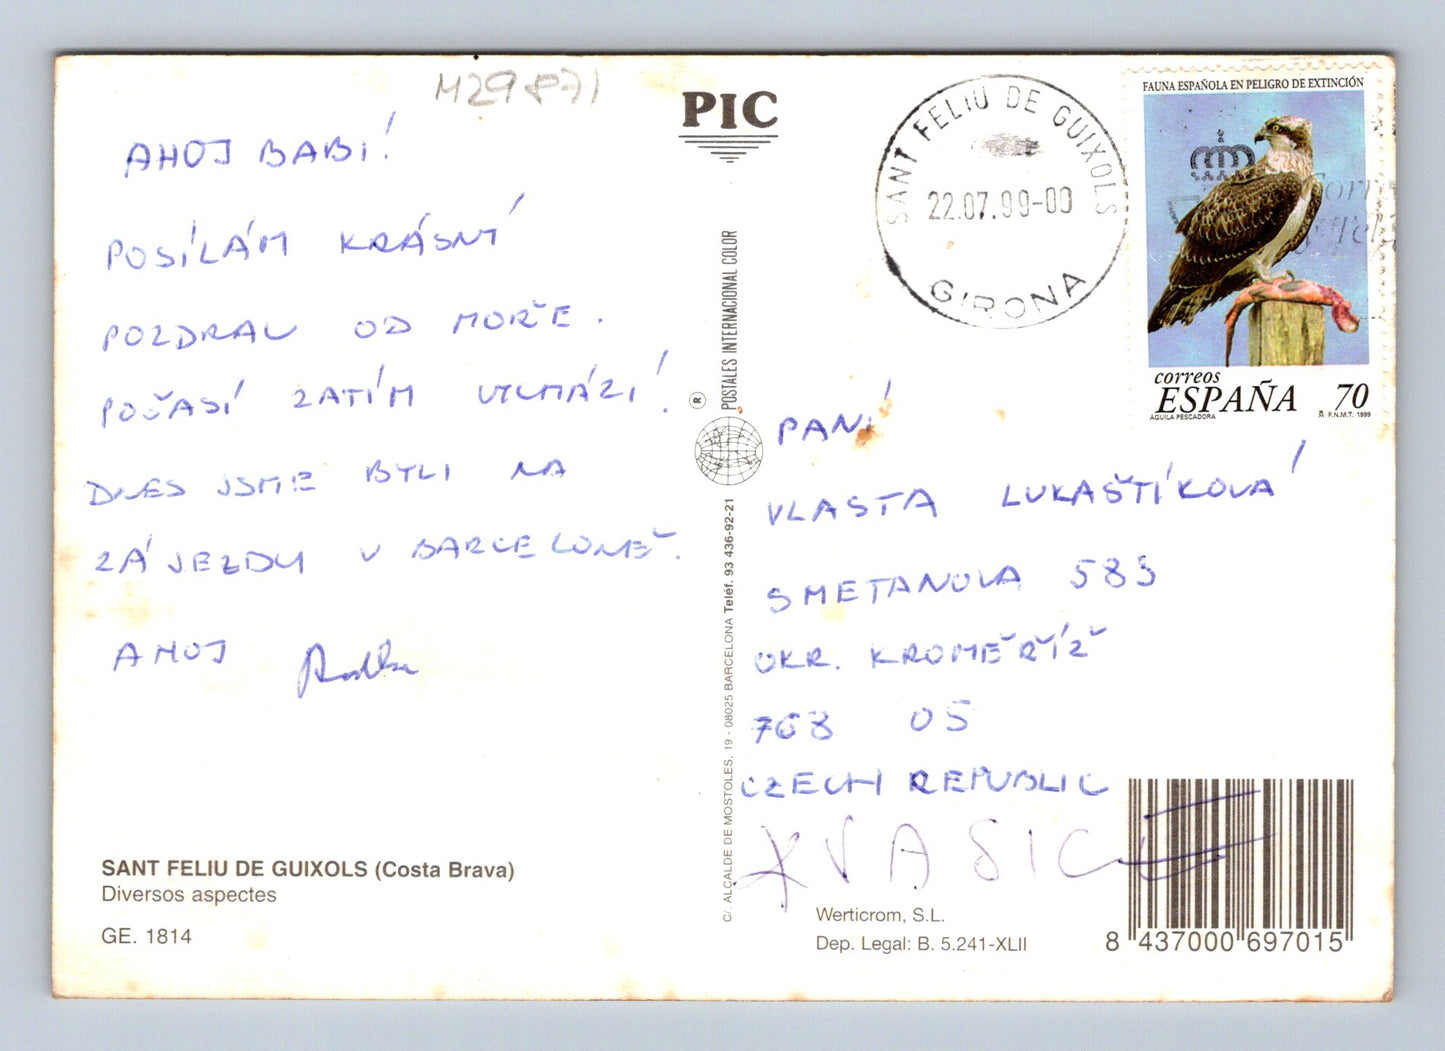 M29871
AHOJ BABI!
POSÍLÁM KRÁSNÝ
POZDRAV OD MOŘE.
POČASÍ ZATÍM VYCHÁZÍ!
DNES JSME BYLI NA
ZÁJEZDU V BARCELONĚ.
AHOJ Radka
SANT FELIU DE GUIXOLS (Costa Brava)
Diversos aspectes
GE. 1814
PIC
® POSTALES INTERNACIONAL COLOR
C/. ALCALDE DE MOSTOLES, 19 - 08025 BARCELONA Teléf. 93 436-92-21
SANT FELIU DE GUIXOLS
22.07.99-00
GIRONA
FAUNA ESPAÑOLA EN PELIGRO DE EXTINCIÓN
correos
ESPAÑA 70
AGUILA PESCADORA F.N.M.T. 1999
PANÍ
VLASTA LUKAŠTÍKOVÁ
SMETANOVA
OKR. KROMĚŘÍŽ
768 05
CZECH REPUBLIC
KVASICE
Werticrom, S.L.
Dep. Legal: B. 5.241-XLII
8 437000 697015